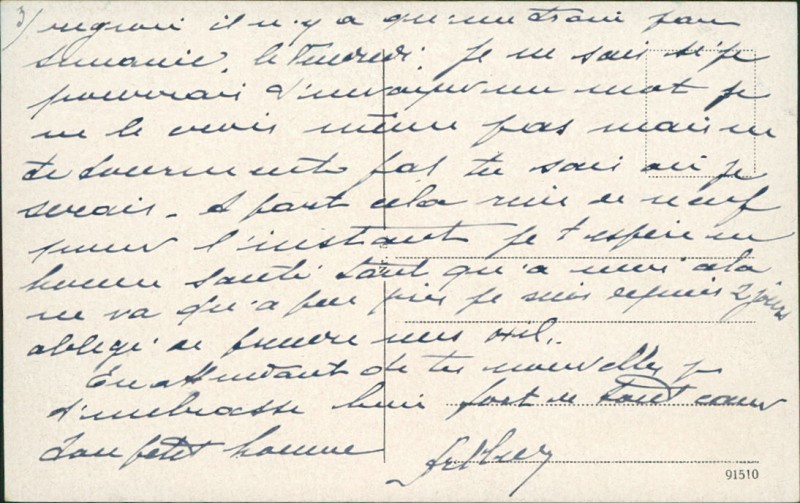 3/ il n'y a qu'un train par
semaine, le Vendredi. Je ne sais si je
pourrais t'envoyer un mot je
ne le crois même pas mais ne
te tourmente pas tu sais où je
serais. A part cela rien de neuf
pour l'instant je t'espère en
bonne santé. Tant qu'a moi cela
ne va qu'a peu près je suis depuis 2 jours
obligé de
En attendant de tes nouvelles je
t'embrasse bien fort de tout cœur
Ton petit homme
91510